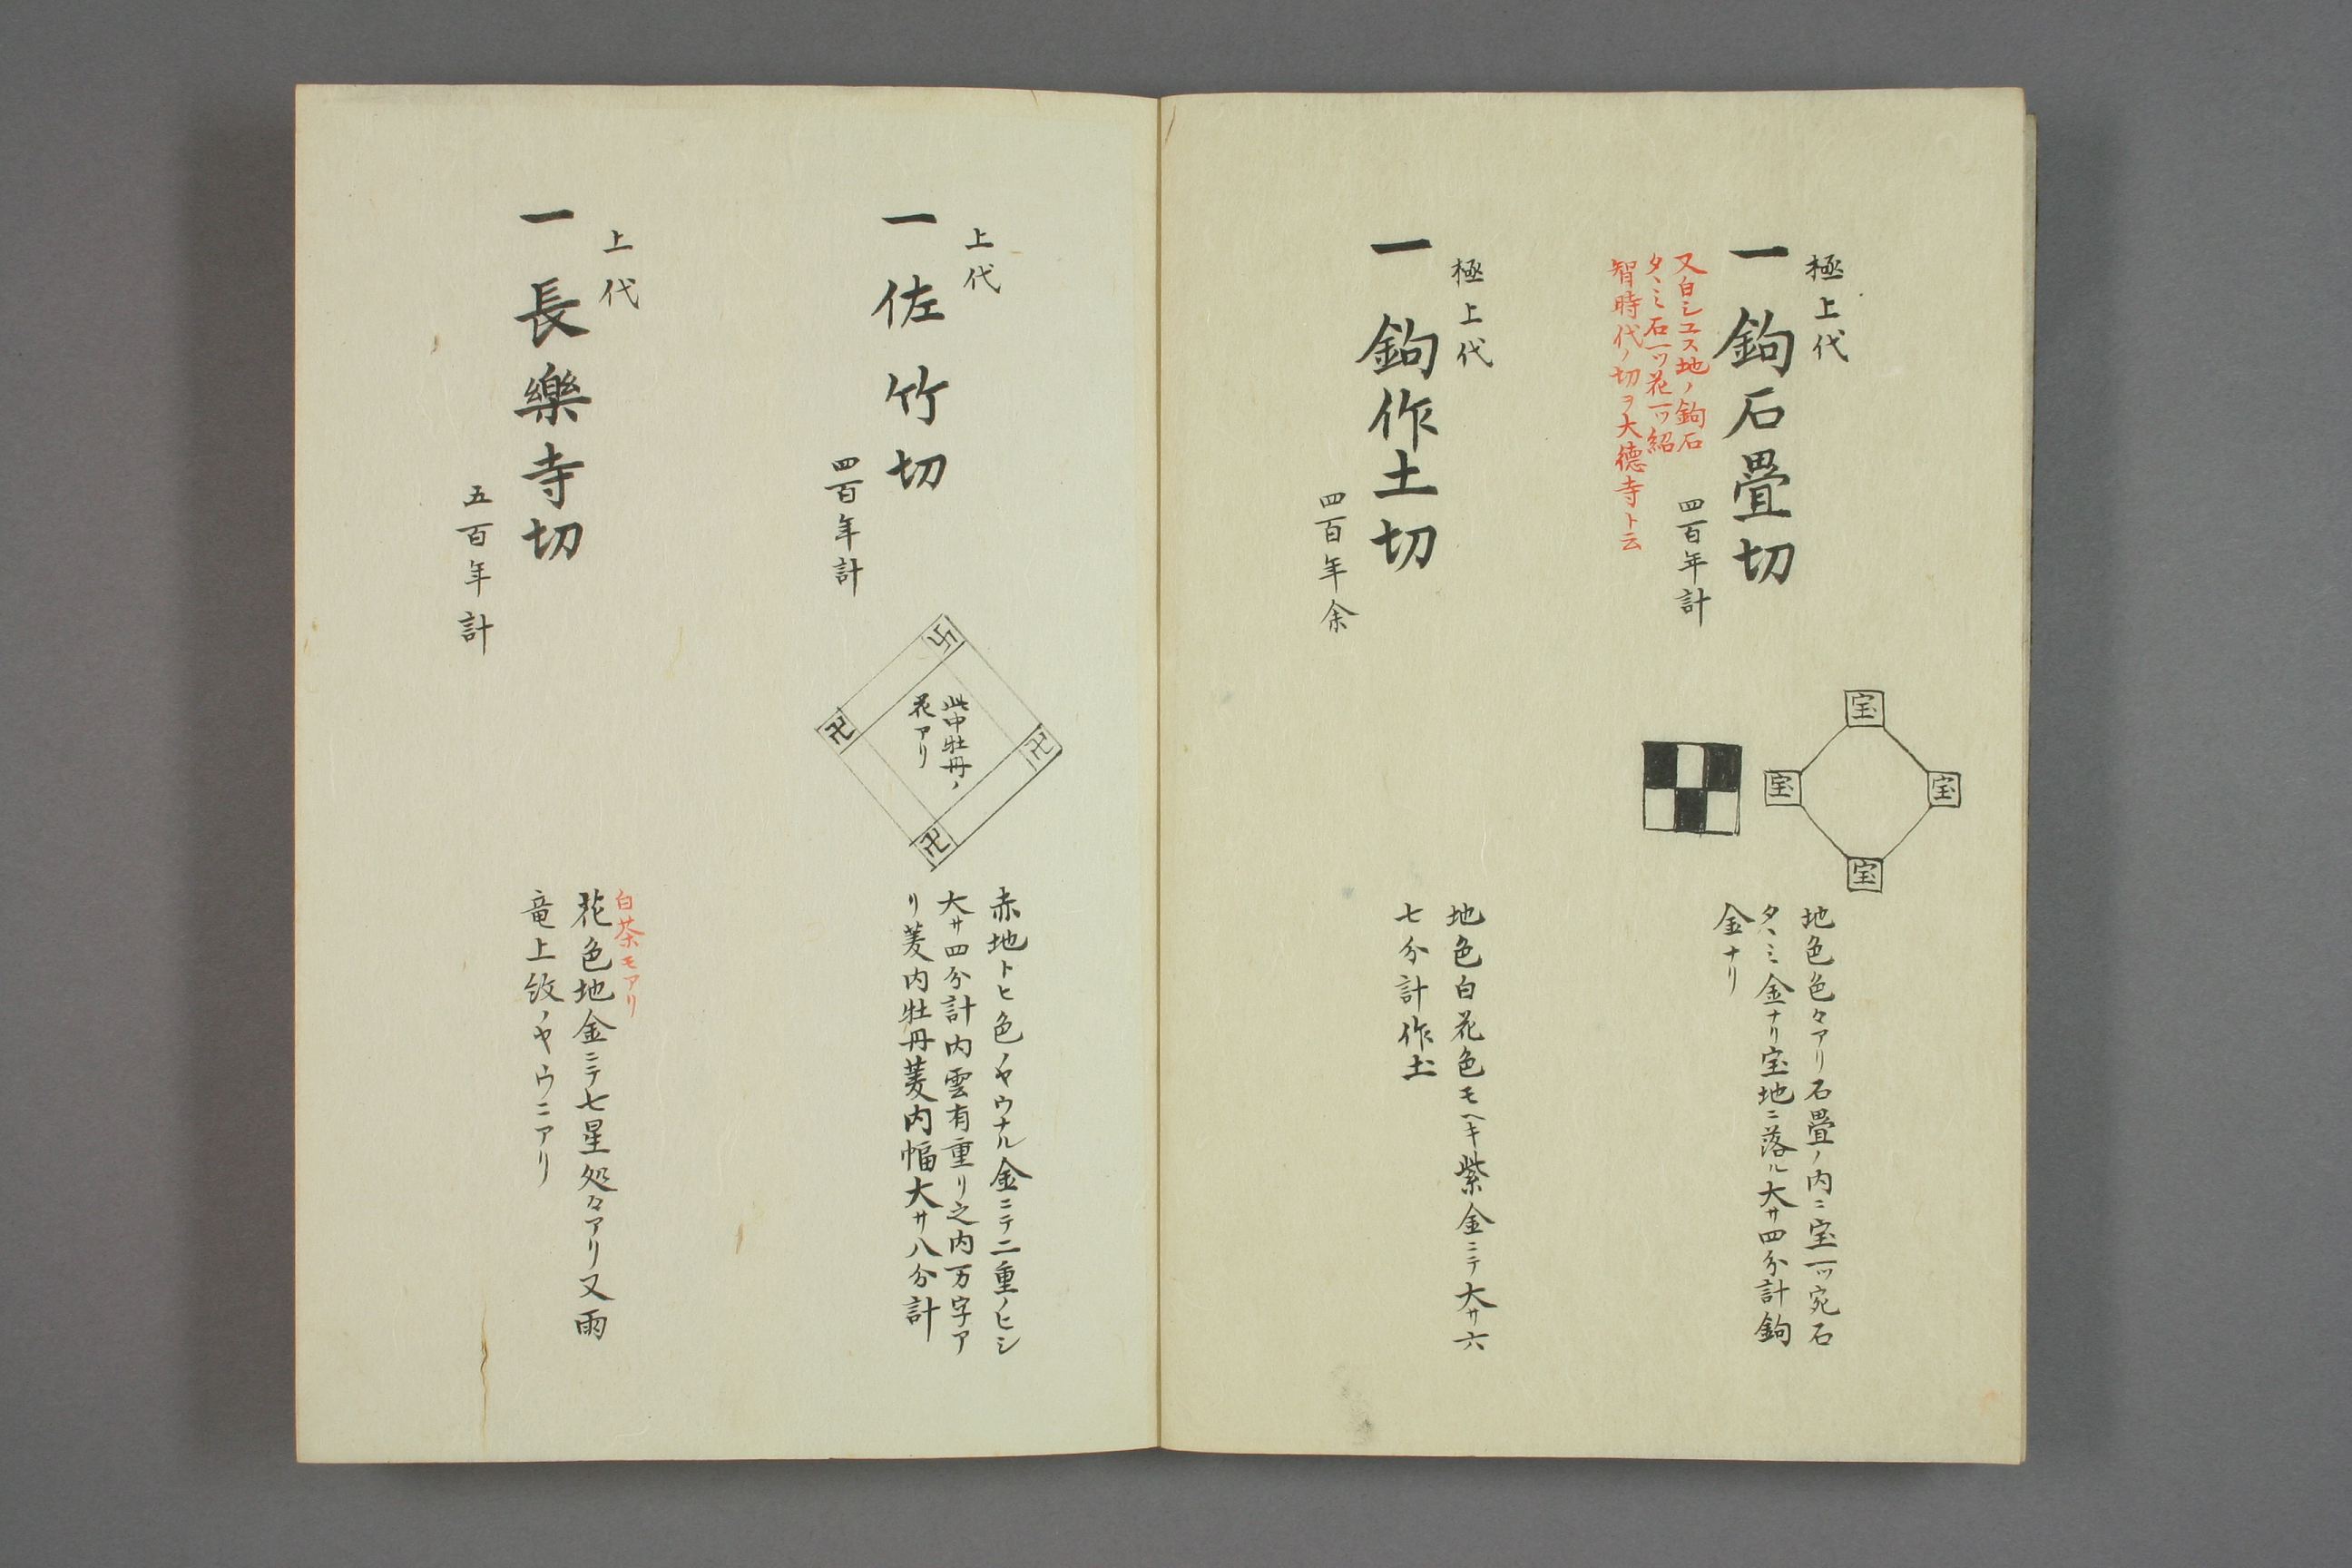 極上代
一 鉤石畳切
四百年計
又白シユス地ノ鉤石
タヽミ石一ツ花一ツ紹
智時代ノ切ヲ大徳寺ト云
宝
宝
宝
宝
地色色々アリ石畳ノ内ニ宝一ツ宛石
タヽミ金ナリ宝地ニ落ル大サ四分計鉤
金ナリ
極上代
一 鉤作土切
四百年余
地色白花色モヘキ紫金ニテ大サ六
七分計作土
上代
一 佐竹切
四百年計
卐
卍
卍
卍
此中牡丹ノ
花アリ
赤地トヒ色ノヤウナル金ニテ二重ノヒシ
大サ四分計内雲有重リ之内万字ア
リ菱内牡丹菱内幅大サ八分計
上代
一 長樂寺切
五百年計
白茶モアリ
花色地金ニテ七星処々アリ又雨
竜上紋ノヤウニアリ